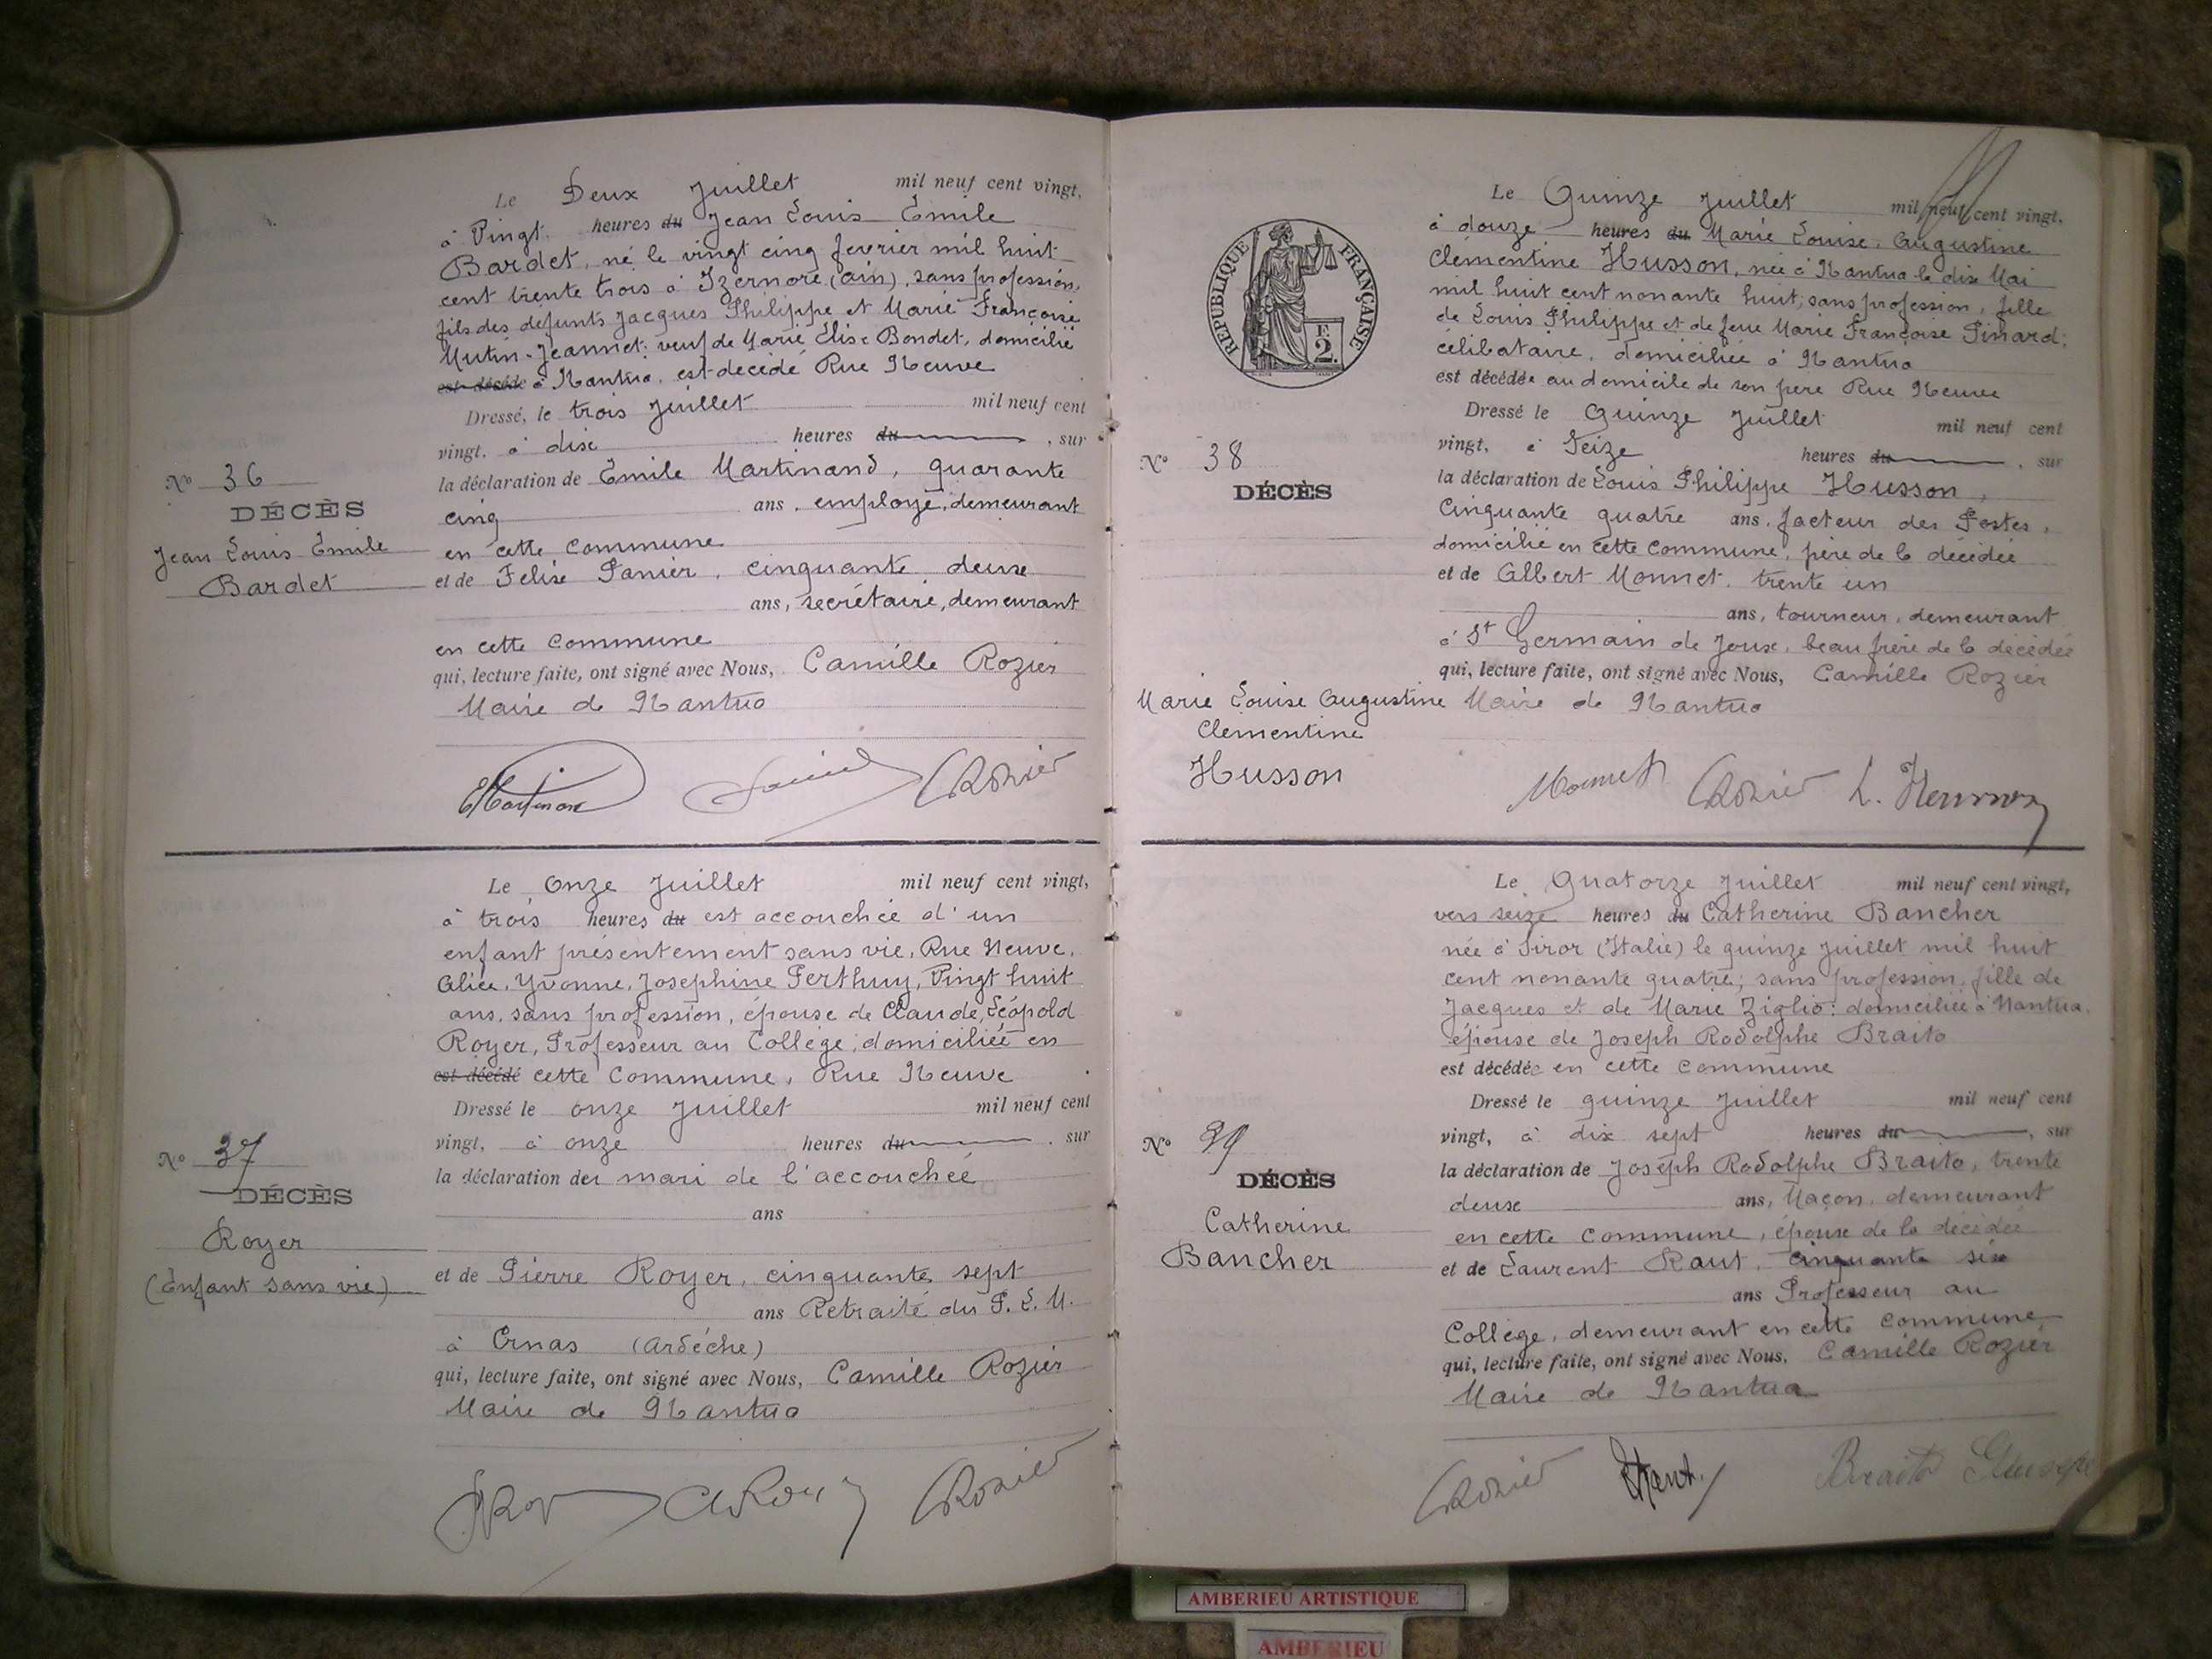 Le Deux Juillet mil neuf cent vingt,
à Vingt heures du Jean Louis Emile
Bardet, né le vingt cinq fevrier mil huit
cent trente trois à Izernore (Ain), sans profession,
fils des defunts Jacques Philippe et Marie Françoise
Mutin-Jeannet; veuf de Marie Elise Bondet, domicilié
est décédé à Nantua, est décédé Rue Neuve
Dressé, le trois Juillet mil neuf cent
vingt, à dix heures du , sur
la déclaration de Emile Martinand, quarante
cinq ans, employé, demeurant
en cette commune
et de Felix Panier, cinquante deux
ans, secrétaire, demeurant
en cette commune
qui, lecture faite, ont signé avec Nous, Camille Rozier
Maire de Nantua
No 36
DÉCÈS
Jean Louis Emile
Bardet
Le Onze Juillet mil neuf cent vingt,
à trois heures du est accouchée d'un
enfant présentement sans vie, Rue Neuve,
Alice, Yvonne, Josephine Perthuy, Vingt huit
ans, sans profession, épouse de Claude, Léopold
Royer, Professeur au Collège, domiciliée en
est décédé cette commune, Rue Neuve
Dressé le onze Juillet mil neuf cent
vingt, à onze heures du , sur
la déclaration du mari de l'accouchée
ans
et de Pierre Royer, cinquante sept
ans Retraité du P. L. M.
à Ornas (Ardéche)
qui, lecture faite, ont signé avec Nous, Camille Rozier
Maire de Nantua
No 37
DÉCÈS
Royer
(Enfant sans vie)
RÉPUBLIQUE FRANÇAISE
2
Le Quinze Juillet mil neuf cent vingt,
à douze heures du Marie Louise, Augustine
Clémentine Husson, née à Nantua le dix Mai
mil huit cent nonante huit; sans profession, fille
de Louis Philippe et de feue Marie Françoise Pinard;
célibataire, domiciliée à Nantua
est décédée au domicile de son pere Rue Neuve
Dressé le Quinze Juillet mil neuf cent
vingt, à Seize heures du , sur
la déclaration de Louis Philippe Husson,
Cinquante quatre ans, facteur des Postes,
domicilié en cette commune, père de la décédée
et de Albert Monnet, trente un
ans, tourneur, demeurant
à St Germain de Joux, beau frère de la décédée
qui, lecture faite, ont signé avec Nous, Camille Rozier
Maire de Nantua
No 38
DÉCÈS
Marie Louise Augustine
Clementine
Husson
Monnet Rozier L. Husson
Le Quatorze Juillet mil neuf cent vingt,
vers seize heures du Catherine Bancher
née à Siror (Italie) le quinze Juillet mil huit
cent nonante quatre; sans profession, fille de
Jacques et de Marie Ziglio: domiciliée à Nantua,
épouse de Joseph Rodolphe Braito
est décédée en cette commune
Dressé le quinze Juillet mil neuf cent
vingt, à dix sept heures du , sur
la déclaration de Joseph Rodolphe Braito, trente
deux ans, Maçon, demeurant
en cette commune, épouse de la décédée
et de Laurent Raut, cinquante six
ans Professeur au
Collège, demeurant en cette commune,
qui, lecture faite, ont signé avec Nous, Camille Rozier
Maire de Nantua
No 39
DÉCÈS
Catherine
Bancher
Rozier Braito
AMBERIEU ARTISTIQUE
AMBERIEU